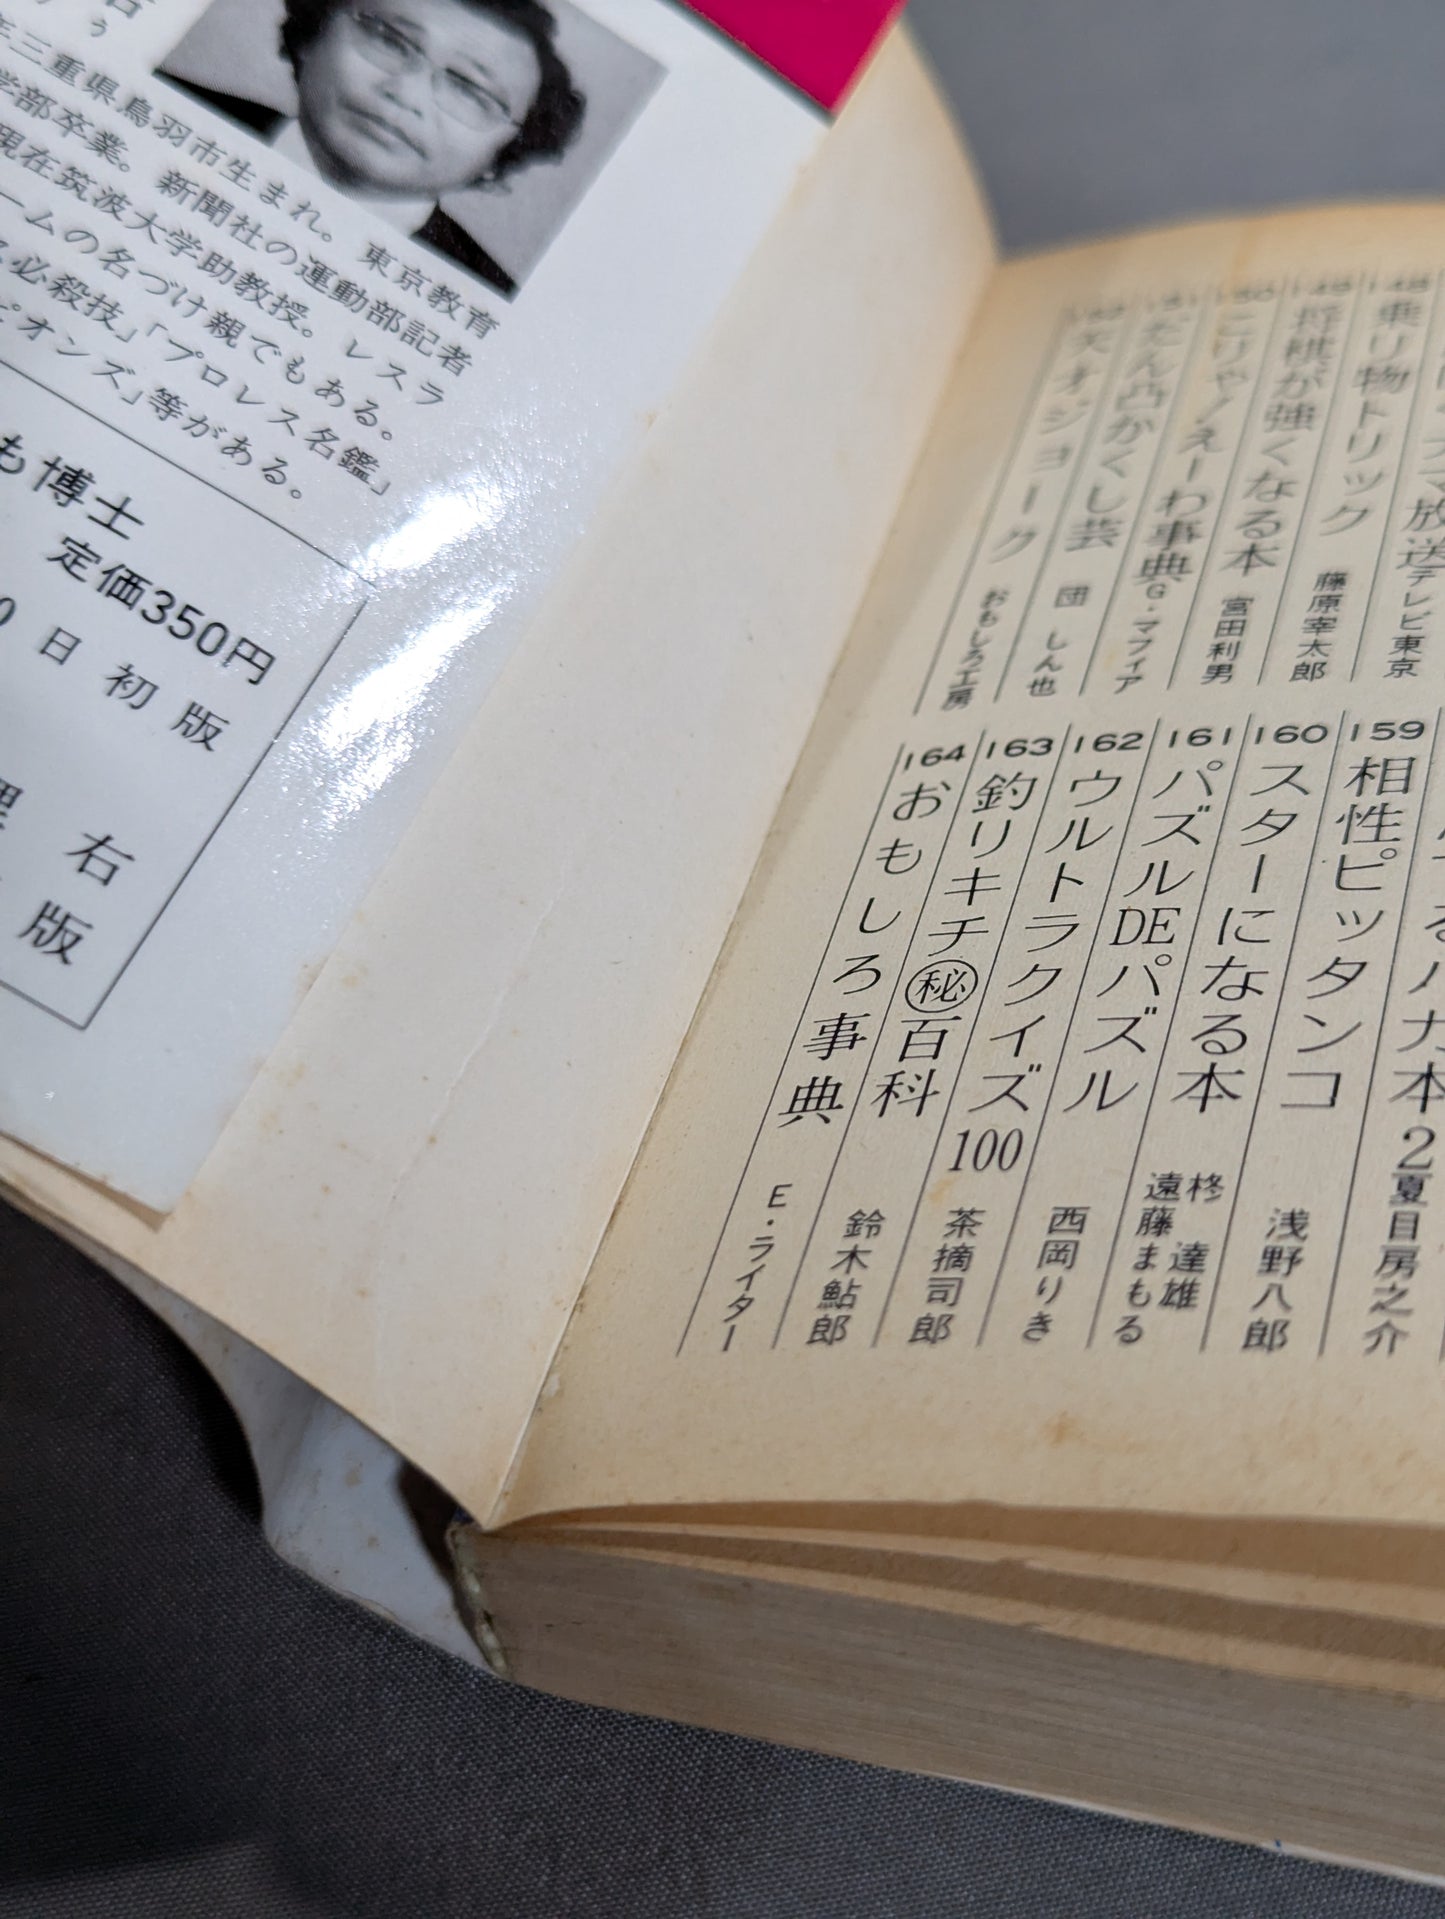 三重県鳥羽市生まれ。東京教育
学部卒業。新聞社の運動部記者
現在筑波大学助教授。レスラ
ームの名づけ親でもある。
必殺技」「プロレス名鑑」
ピオンズ」等がある。
も博士
定価350円
0日初版
右
版
148 乗り物トリック 藤原宰太郎
149 将棋が強くなる本 宮田利男
150 こりゃ!えーわ事典 G・マフィア
151 だん凸かくし芸 団しん也
152 天才ジョーク おもしろ工房
放送 テレビ東京
るバカ本2 夏目房之介
159 相性ピッタンコ 浅野八郎
160 スターになる本 柊達雄 遠藤まもる
161 パズルDEパズル 西岡りき
162 ウルトラクイズ100 茶摘司郎
163 釣りキチ㊙百科 鈴木鮎郎
164 おもしろ事典 E・ライター